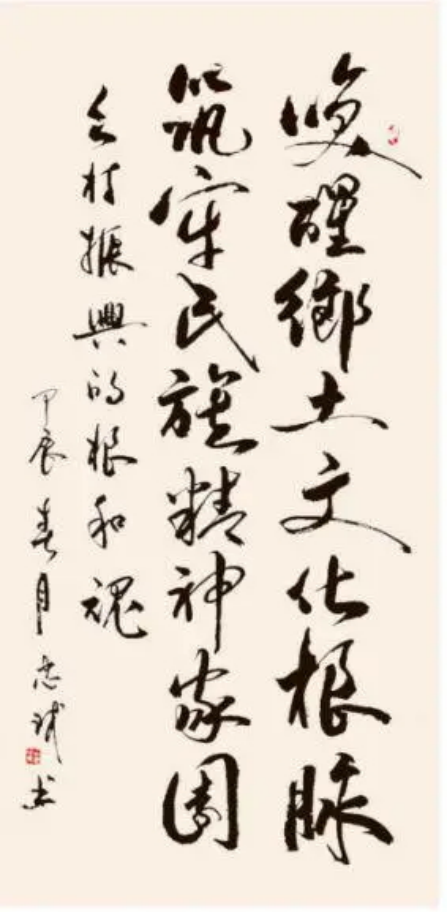 唤醒鄉土文化根脉
筑牢民族精神家園
乡村振興的根和魂
甲辰春月书